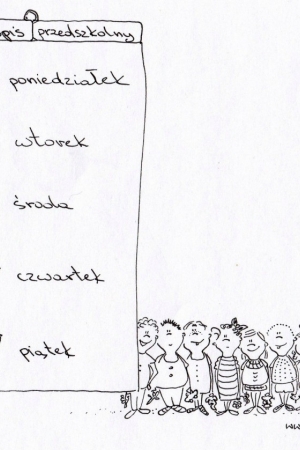 pis przedszkolny
poniedziałek
wtorek
środa
czwartek
piątek
ww